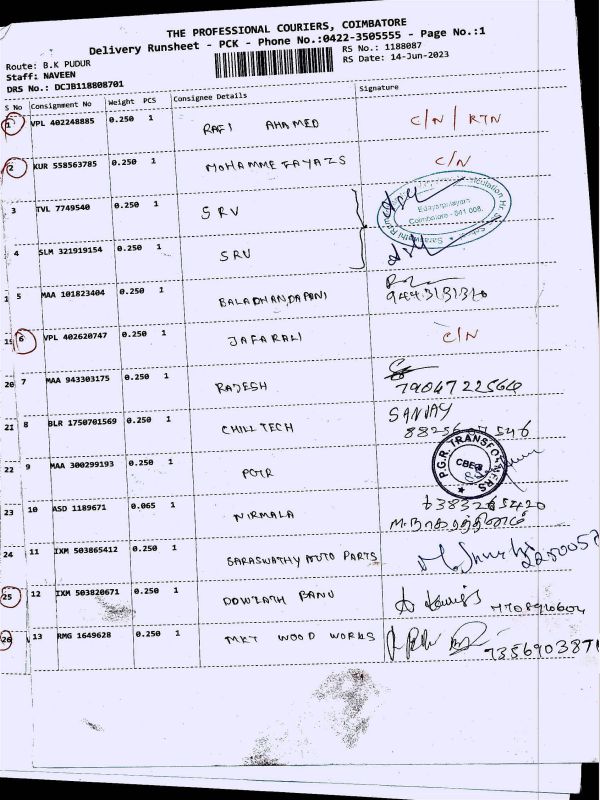 THE PROFESSIONAL COURIERS, COIMBATORE
Delivery Runsheet - PCK - Phone No.:0422-3505555 - Page No.:1
Route: B.K PUDUR
RS No.: 1188087
Staff: NAVEEN
RS Date: 14-Jun-2023
DRS No.: DCJB118808701
S No Consignment No Weight PCS Consignee Details Signature
1 VPL 402248885 0.250 1 RAFI AHAMED C/N / RTN
2 KUR 558563785 0.250 1 MOHAMME FAYAZS C/N
3 TVL 7749540 0.250 1 SRV
Edayarpalayam
Coimbatore - 641 008.
4 SLM 321919154 0.250 1 SRV
5 MAA 101823404 0.250 1 BALADHANDAPANI
19 6 VPL 402620747 0.250 1 JAFARALI C/N
20 7 MAA 943303175 0.250 1 RAJESH 7904722564
21 8 BLR 1750701569 0.250 1 CHILL TECH SANJAY
22 9 MAA 300299193 0.250 1 PGTR
P.G.R. TRANSFORMERS
CBE
23 10 ASD 1189671 0.065 1 NIRMALA 6383265420
24 11 IXM 503865412 0.250 1 SARASWATHY AUTO PARTS
25 12 IXM 503820671 0.250 1 DOWLATH BANU
26 13 RMG 1649628 0.250 1 MKT WOOD WORKS